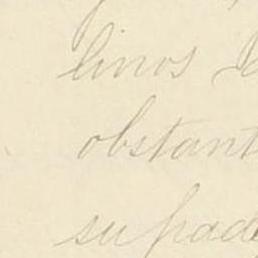 linos
obstant
supad